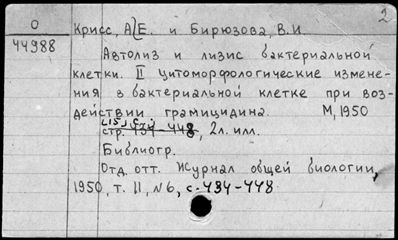 2
О Крисс, А.Е. и Бирюзова, В.И.
44988
Автолиз и лизис бактериальной
клетки. II Цитоморфологические измене-
ния в бактериальной клетке при воз-
действии грамицидина. М, 1950
[15] с.
стр. 434-448, 2 л. илл.
Библиогр.
Отд. отт. Журнал общей биологии,
1950, т. II, N6, с. 434-448